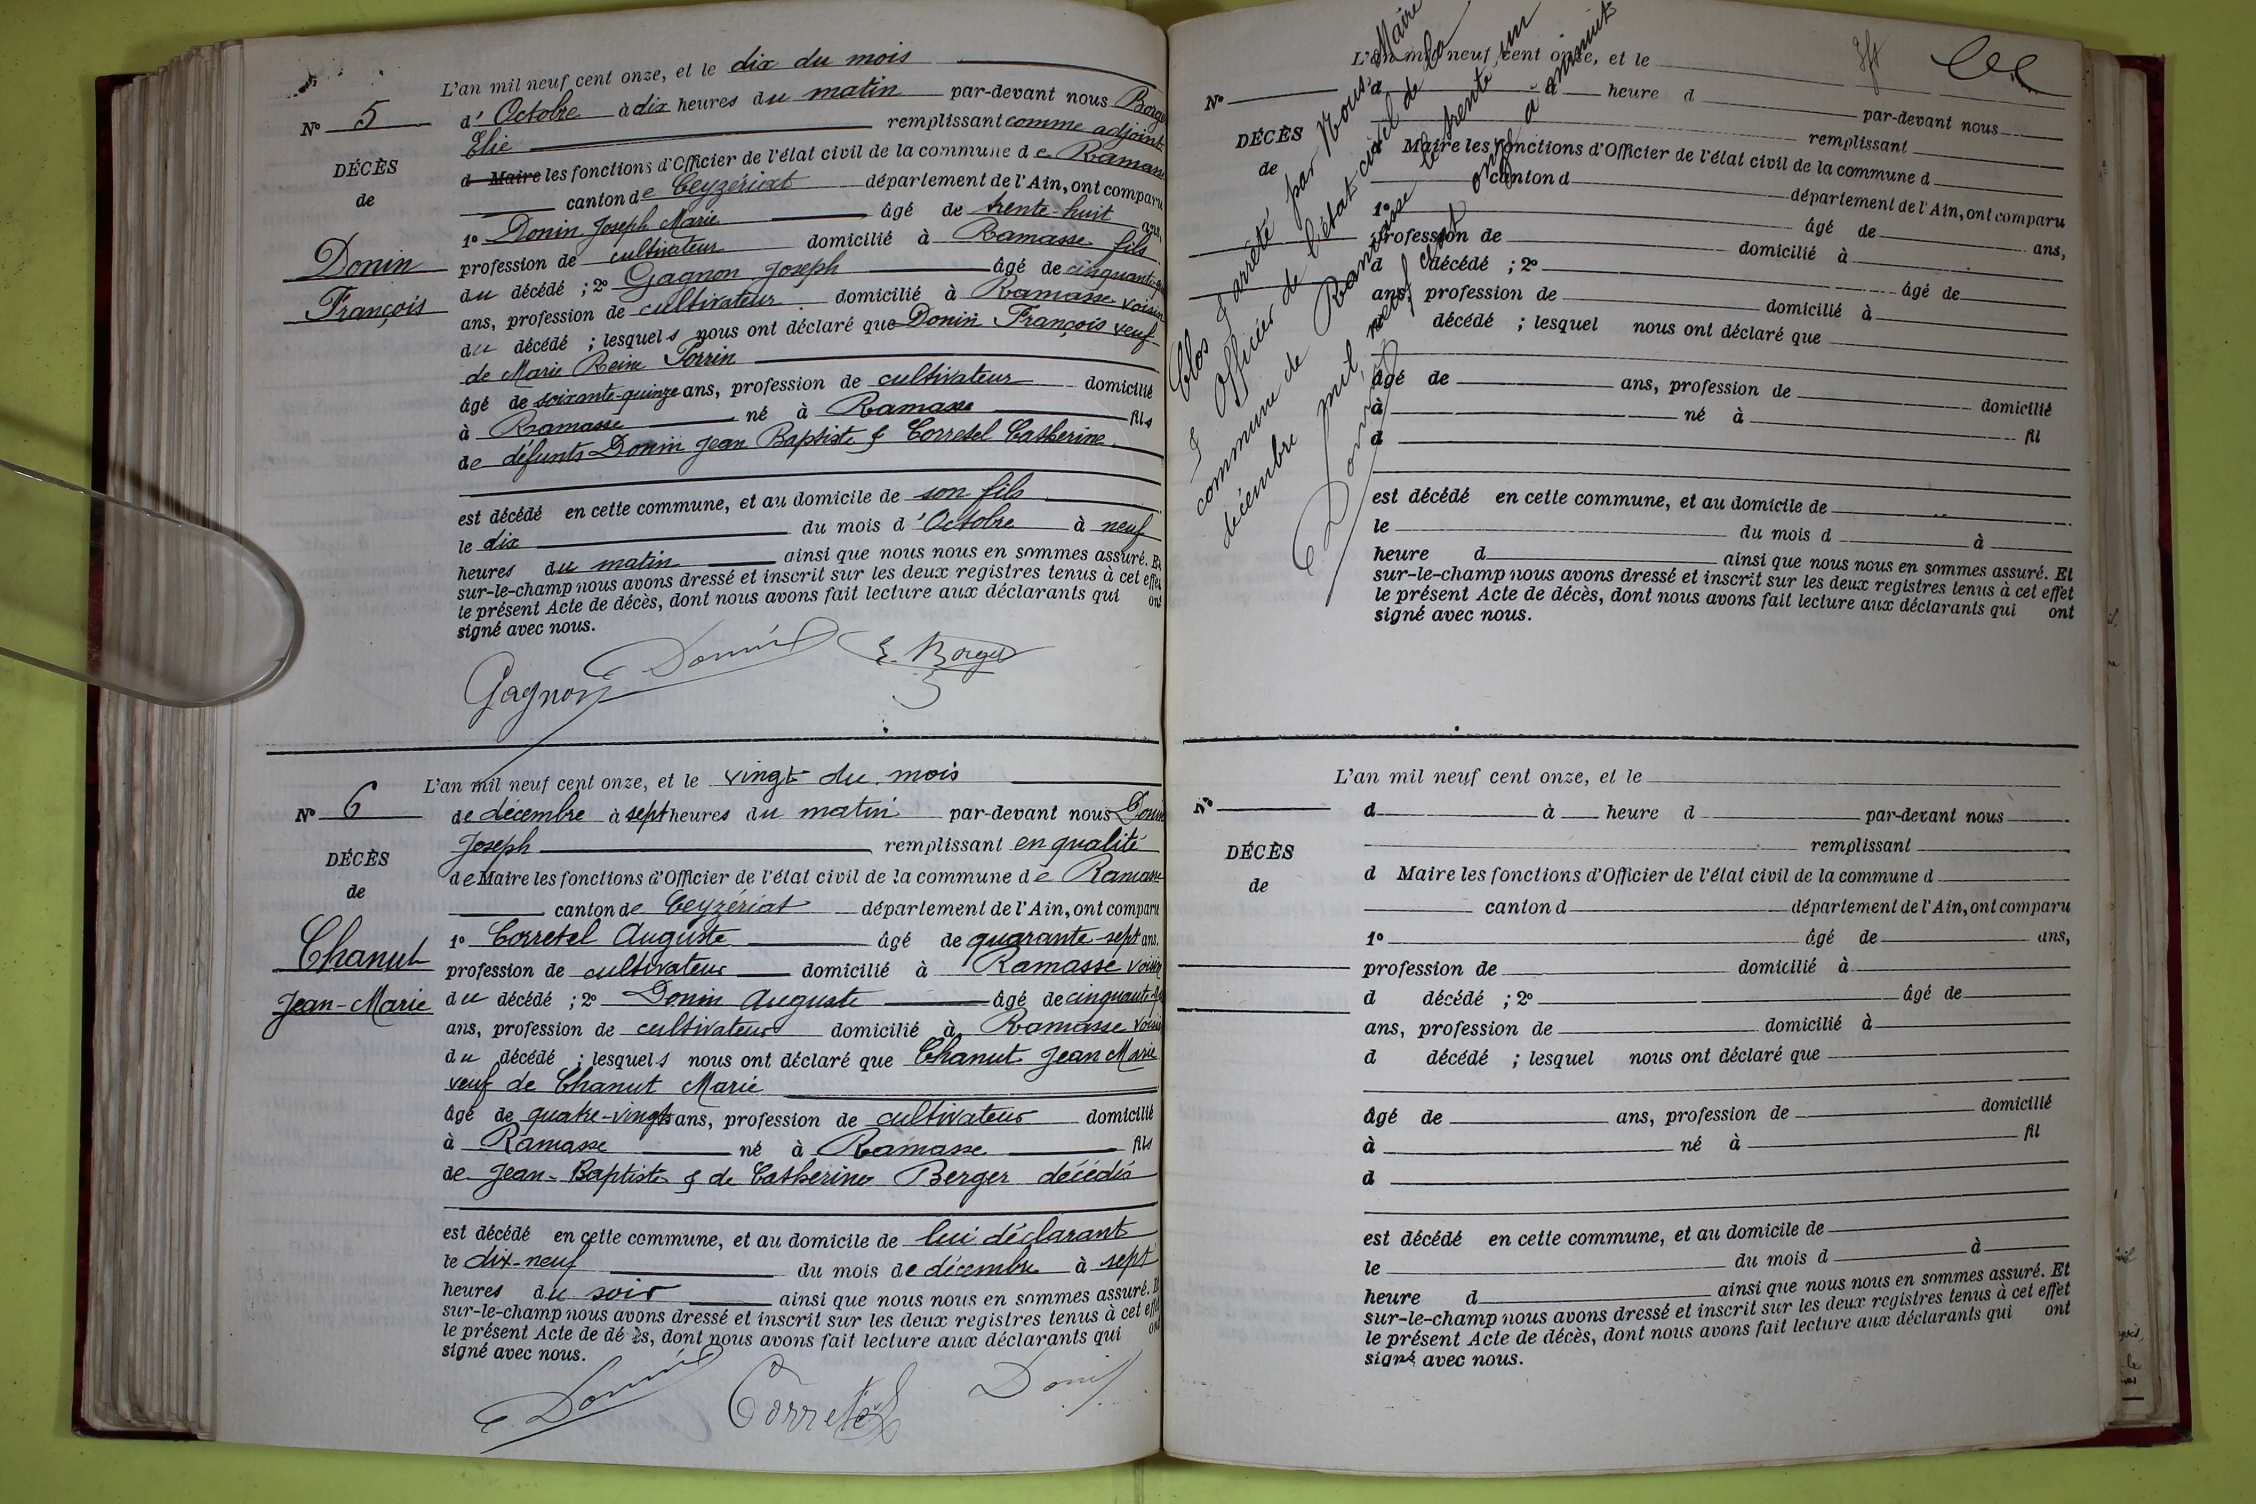 L'an mil neuf cent onze, et le dix du mois
N° 5
d'Octobre à dix heures du matin par-devant nous Borge
Elie remplissant comme adjoint
DÉCÈS
d Maire les fonctions d'Officier de l'état civil de la commune de Ramasse
de
canton de Ceyzériat département de l'Ain, ont comparu
1° Donin Joseph Marie âgé de trente-huit ans,
Donin
profession de cultivateur domicilié à Ramasse fils
François
du décédé ; 2° Gagnon Joseph âgé de cinquante
ans, profession de cultivateur domicilié à Ramasse voisin
du décédé ; lesquels nous ont déclaré que Donin François veuf
de Marie Reine Porrin
âgé de soixante-quinze ans, profession de cultivateur domicilié
à Ramasse né à Ramasse fils
de défunts Donin Jean Baptiste & Corretel Catherine
est décédé en cette commune, et au domicile de son fils
le dix du mois d'Octobre à neuf
heures du matin ainsi que nous nous en sommes assuré. Et
sur-le-champ nous avons dressé et inscrit sur les deux registres tenus à cet effet
le présent Acte de décès, dont nous avons fait lecture aux déclarants qui ont
signé avec nous.
Gagnon Donin E. Borges
L'an mil neuf cent onze, et le vingt du mois
N° 6
de décembre à sept heures du matin par-devant nous Donin
Joseph remplissant en qualité
DÉCÈS
de Maire les fonctions d'Officier de l'état civil de la commune de Ramasse
de
canton de Ceyzériat département de l'Ain, ont comparu
1° Corretel Auguste âgé de quarante-sept ans.
Chanut
profession de cultivateur domicilié à Ramasse voisin
Jean-Marie
du décédé ; 2° Donin Auguste âgé de cinquante
ans, profession de cultivateur domicilié à Ramasse voisin
du décédé ; lesquels nous ont déclaré que Chanut Jean Marie
veuf de Chanut Marie
âgé de quatre-vingts ans, profession de cultivateur domicilié
à Ramasse né à Ramasse fils
de Jean-Baptiste & de Catherine Berger décédés
est décédé en cette commune, et au domicile de lui déclarant
le dix-neuf du mois de décembre à sept
heures du soir ainsi que nous nous en sommes assuré. Et
sur-le-champ nous avons dressé et inscrit sur les deux registres tenus à cet effet
le présent Acte de décès, dont nous avons fait lecture aux déclarants qui ont
signé avec nous.
Donin Corretel Donin
Clos & arrêté par Nous, Maire
& Officier de l'état civil de la
commune de Ramasse le trente un
décembre mil neuf cent onze à minuit
Donin
L'an mil neuf cent onze, et le
N°
d à heure d par-devant nous
remplissant
DÉCÈS
Maire les fonctions d'Officier de l'état civil de la commune d
de
canton d département de l'Ain, ont comparu
1° âgé de ans,
profession de domicilié à
d décédé ; 2° âgé de
ans, profession de domicilié à
décédé ; lesquel nous ont déclaré que
âgé de ans, profession de domicilié
à né à fil
d
est décédé en cette commune, et au domicile de
le du mois d à
heure d ainsi que nous nous en sommes assuré. Et
sur-le-champ nous avons dressé et inscrit sur les deux registres tenus à cet effet
le présent Acte de décès, dont nous avons fait lecture aux déclarants qui ont
signé avec nous.
L'an mil neuf cent onze, et le
N°
d à heure d par-devant nous
remplissant
DÉCÈS
d Maire les fonctions d'Officier de l'état civil de la commune d
de
canton d département de l'Ain, ont comparu
1° âgé de ans,
profession de domicilié à
d décédé ; 2° âgé de
ans, profession de domicilié à
d décédé ; lesquel nous ont déclaré que
âgé de ans, profession de domicilié
à né à fil
d
est décédé en cette commune, et au domicile de
le du mois d à
heure d ainsi que nous nous en sommes assuré. Et
sur-le-champ nous avons dressé et inscrit sur les deux registres tenus à cet effet
le présent Acte de décès, dont nous avons fait lecture aux déclarants qui ont
signé avec nous.